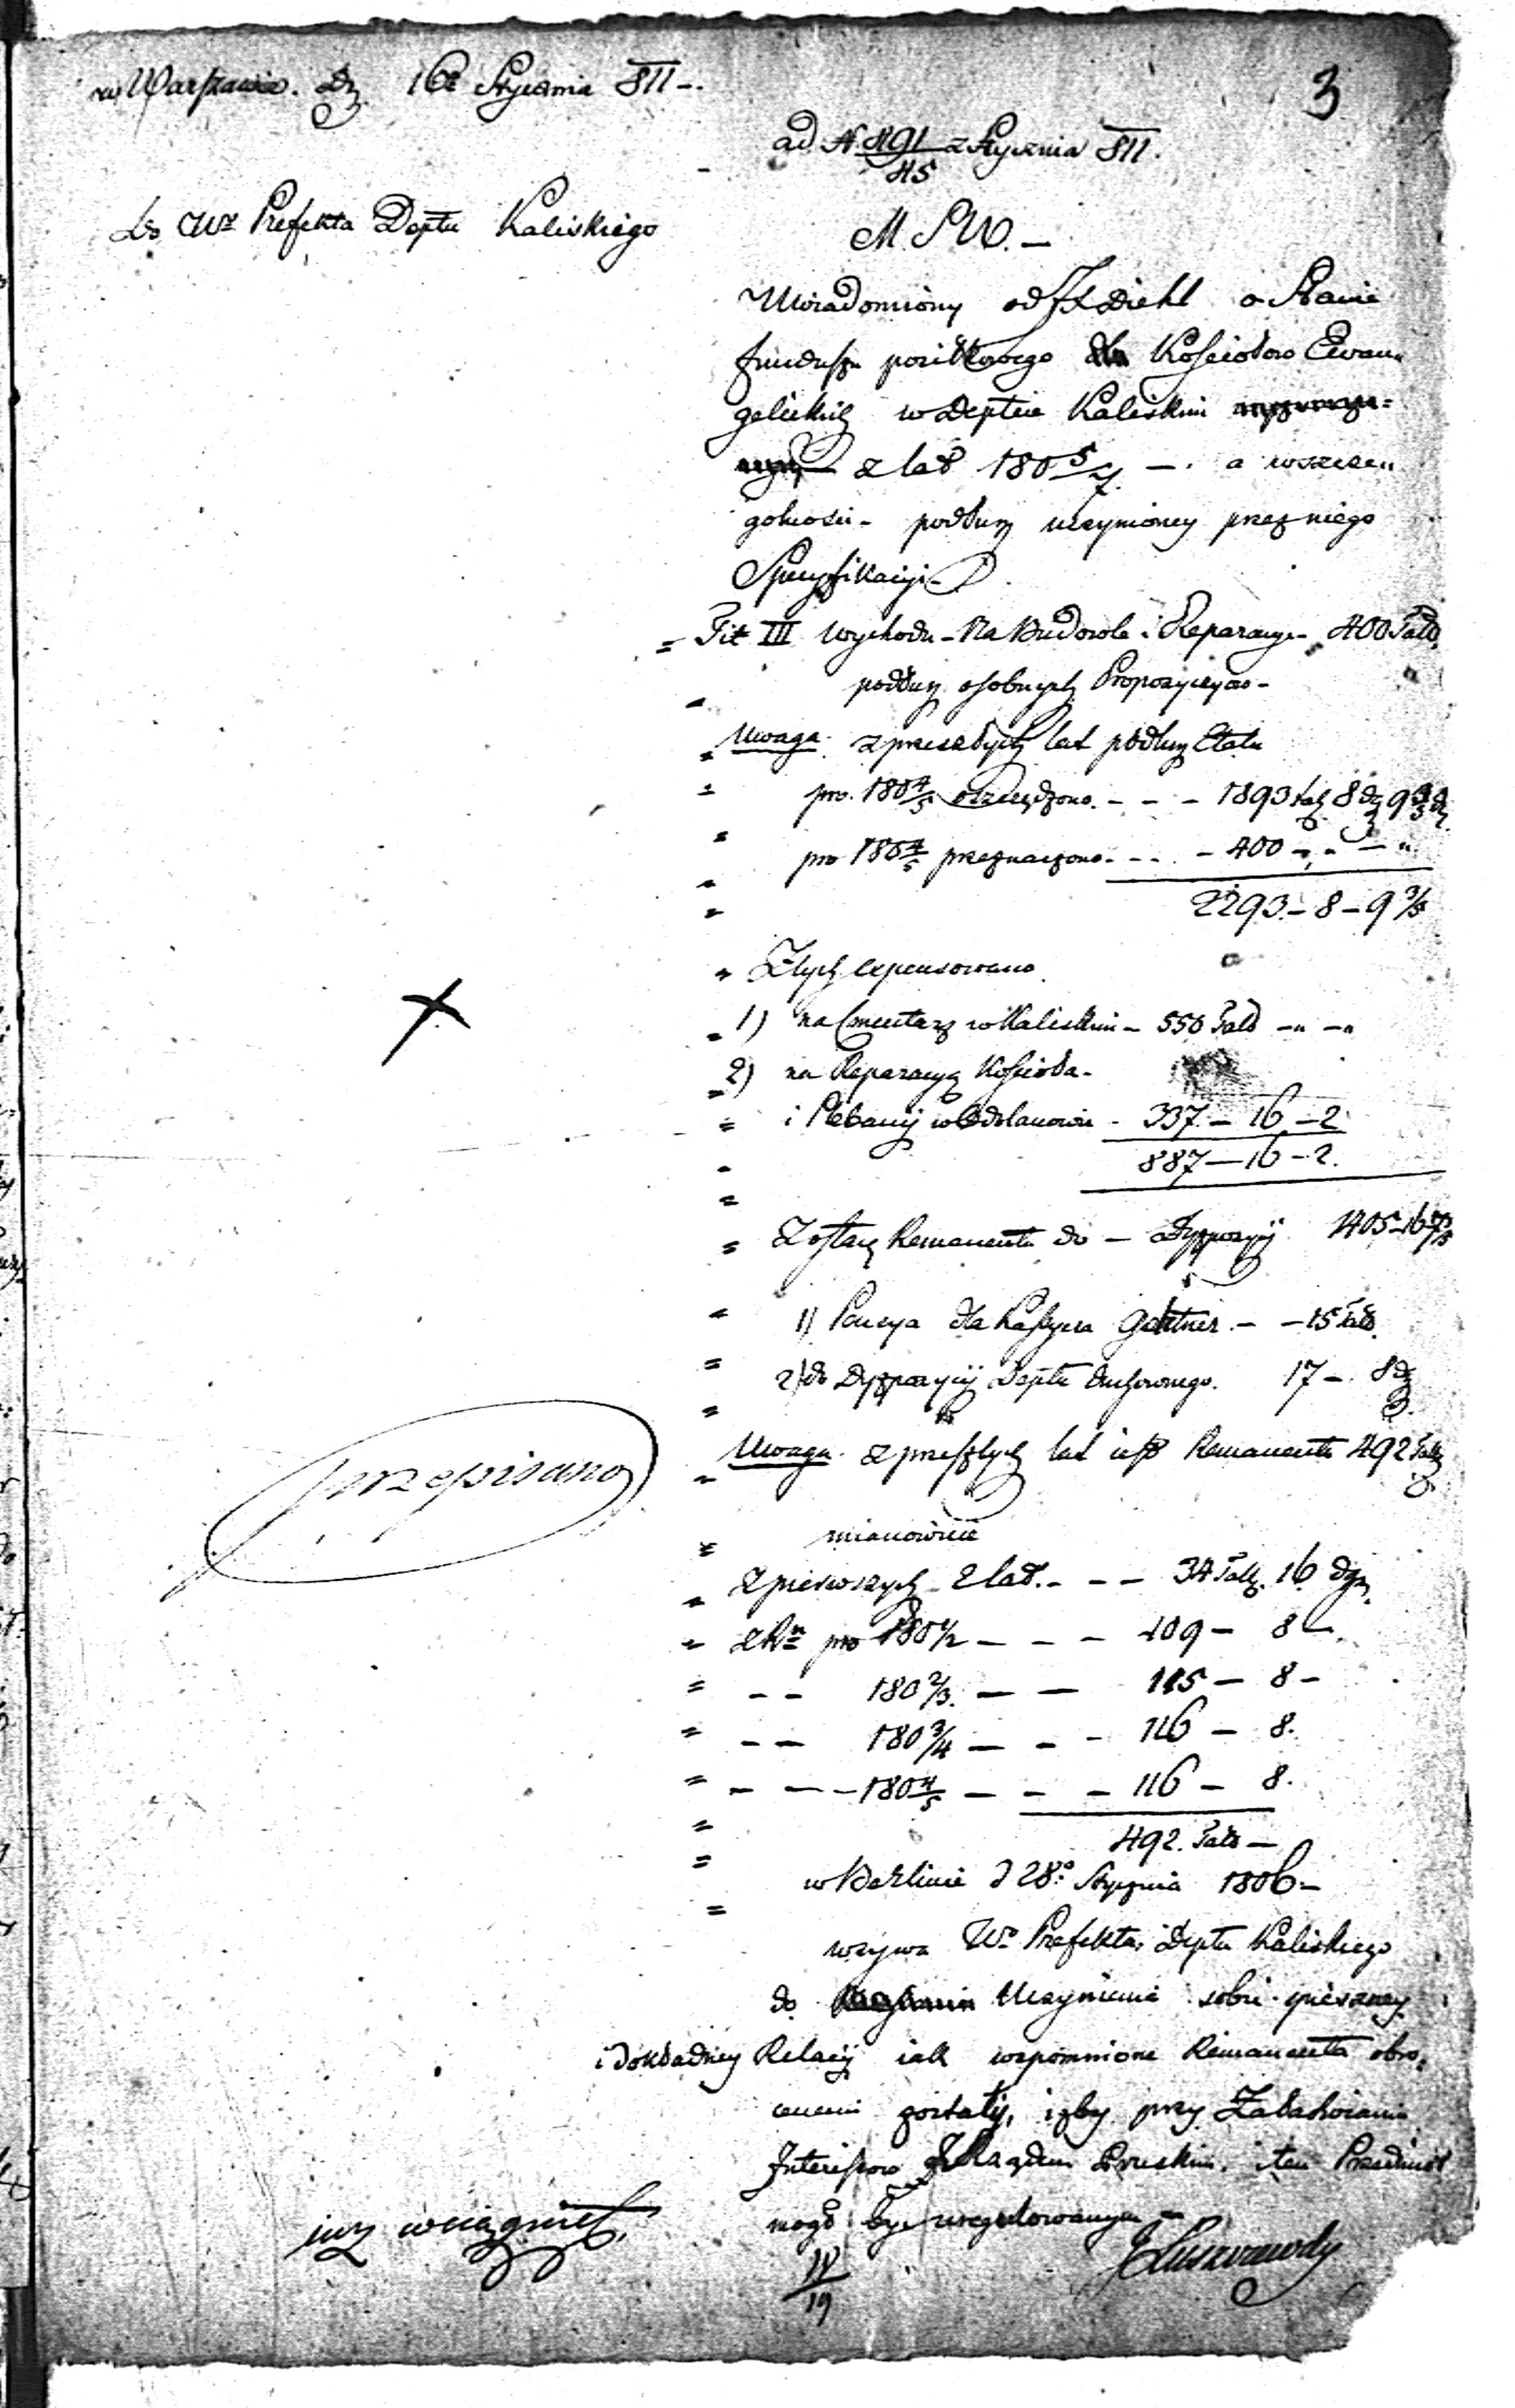 w Warszawie. Dn. 16º Stycznia 811 -.
3
ad N. 891/45 z Stycznia 811.
Do Wº Prefekta Deptu Kaliskiego
M. S W. —
Uwiadomiony od JX Diehl o Stanie
funduszu posiłkowego dla Kościołow Ewan„
gelickich w Deptcie Kaliskim
z lat 180 5/7. — a wszcze„
gólności - podług uczynioney przez niego
Specyfikacyi -
= Tit III Wychodu - Na Budowle i Reparacye - 400 Tal.
podług osobnych Propozycyow -
Uwaga. z przeszłych lat podług Etatu
pro. 180 4/5 oszczędzono. - - - 1893 tal. 8 dg 9 3/5 d.
pro 180 4/5 przeznaczono. - - - 400 - „ - „
2293. - 8 - 9 3/5
Z tych expensowano.
1) na Cmentarz w Kaliskim - 550 Tal. - „ - „
2) na Reparacyą Kościoła -
i Plebanij w Odolanowie - 337. - 16 - 2
887 - 16 - 2.
Zostaię Remanentu do - dyspozycyi 1405 - 16 - 7 3/5
1) Pensya dla Kassyera Gertner. - - 15 Tal.
2) do Dyspozycyi Deptu duchownego. 17 - 8 dg
Uwaga. z przeszłych lat iest Remanentu 492 Tal.
mianowicie
z pierwszych 2 lat. - - - 34 Tal. 16 dgr.
z Rº pro 180 1/2 - - - 109 - 8 -.
- - 180 2/3. - - 115 - 8 -
- - 180 3/4 - - - 116 - 8.
- - - 180 4/5 - - - 116 - 8.
492. Tal. -
w Berlinie d 28º Stycznia 1806 -
wzywa Wº Prefekta Deptu Kaliskiego
do Uczynienia sobie spieszney
i dokładney Relacyi iak wspomnione Remanenta obro„
conemi zostały, iżby przy Załatwianiu
Interessow z Rządem Pruskim i ten Przedmiot
mogł być uregulowanym -
przepisano
już wciągnięt.
IV/19